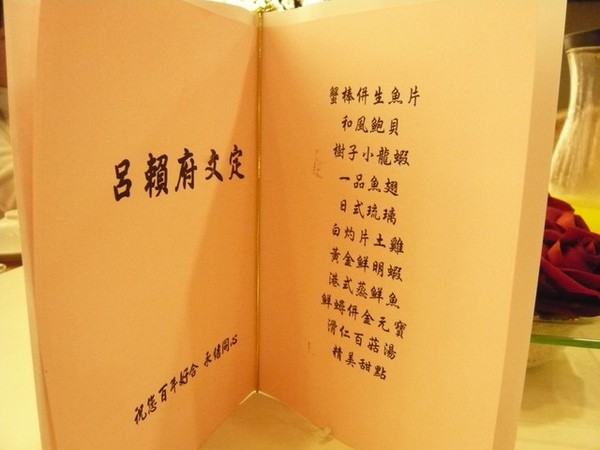 呂賴府文定
祝您百年好合 永結同心
蟹棒併生魚片
和風鮑貝
樹子小龍蝦
一品魚翅
日式琉璃
白灼片土雞
黃金鮮明蝦
港式蒸鮮魚
鮮蟳併金元寶
滑仁百菇湯
精美甜點